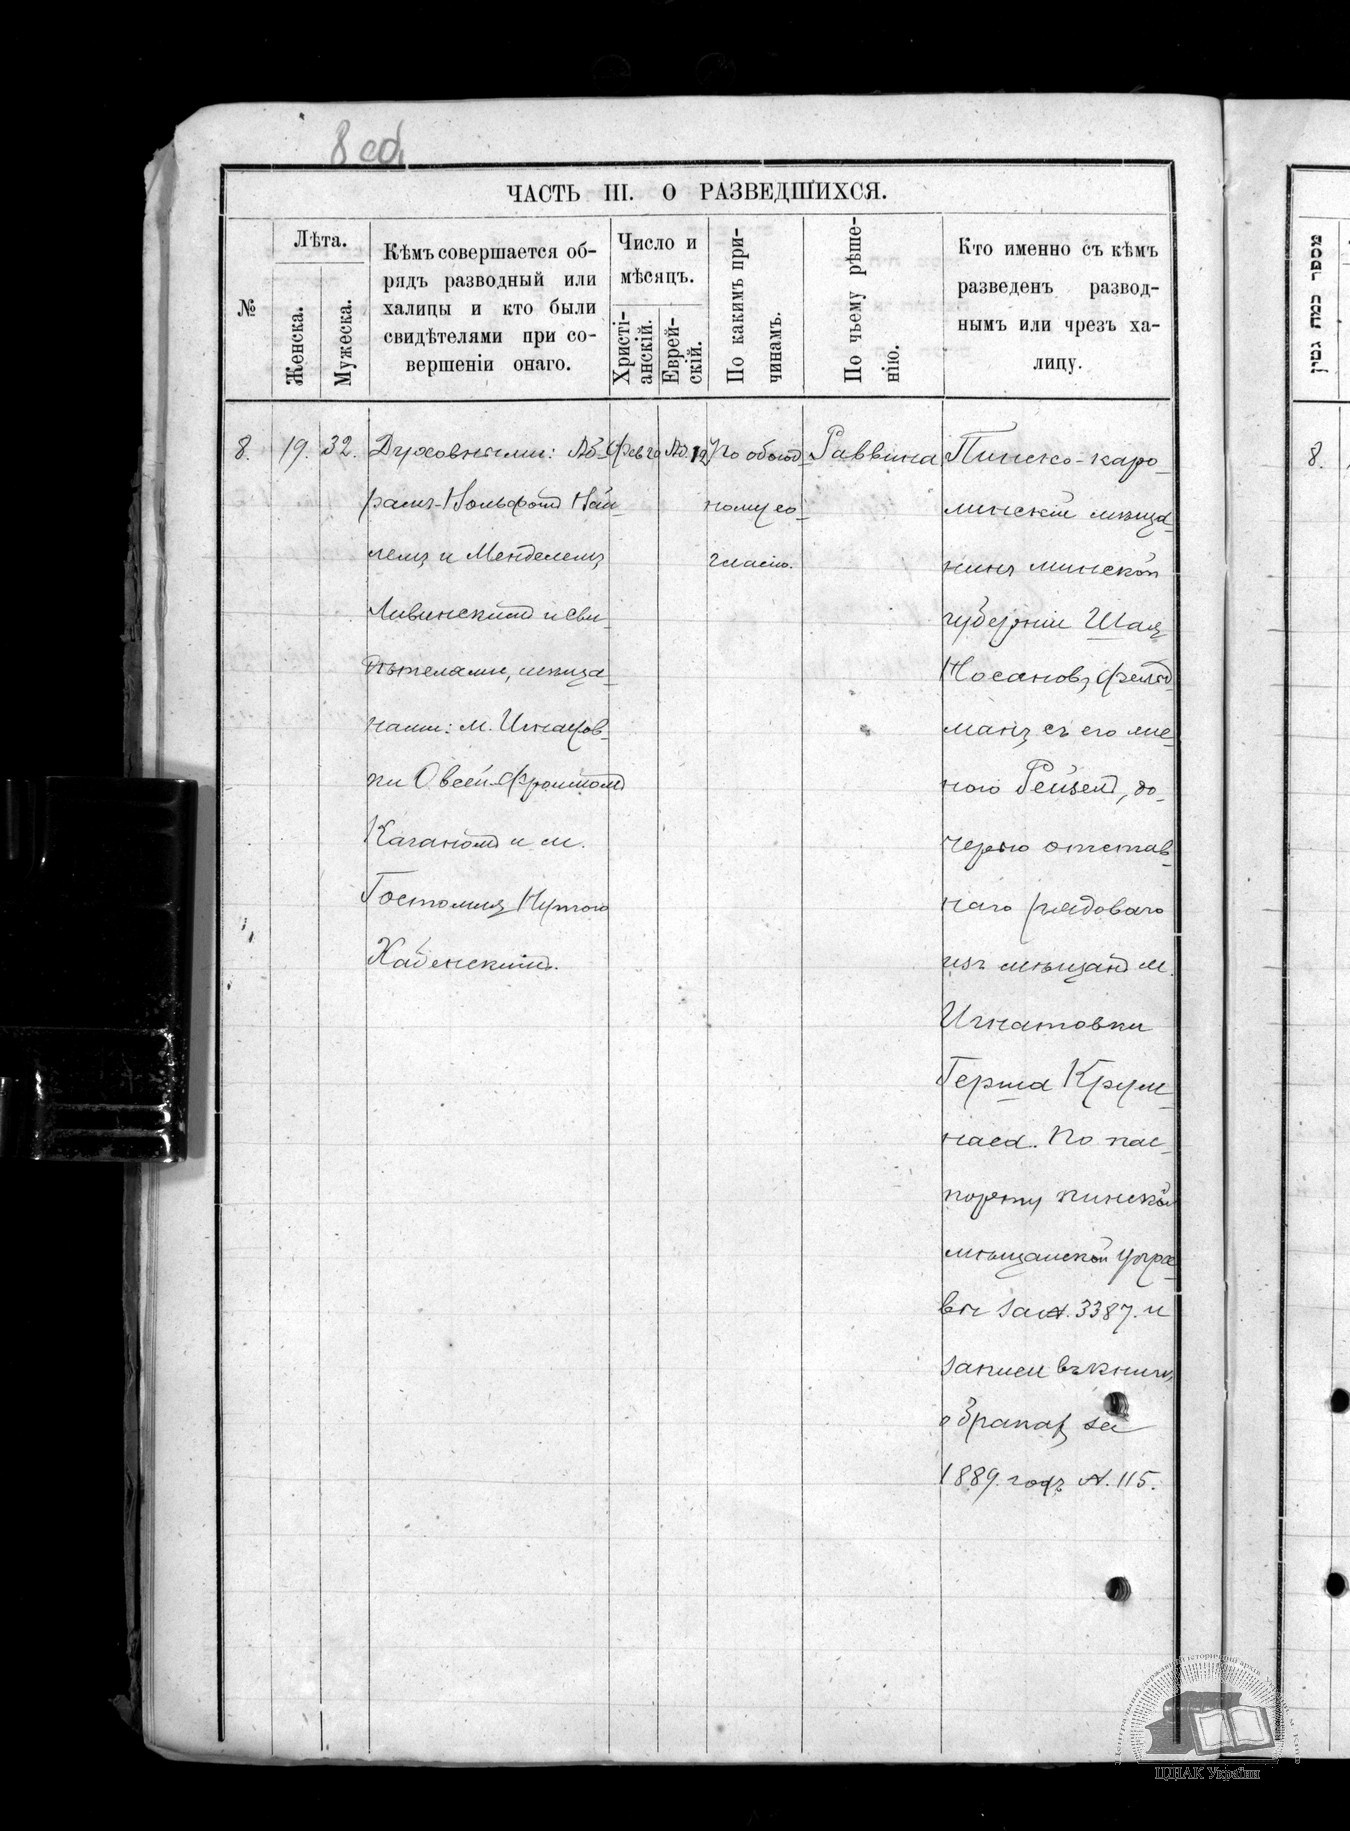 8 об.
ЧАСТЬ III. О РАЗВЕДШИХСЯ.
№
Лѣта.
Женска.
Мужеска.
Кѣмъ совершается об-
рядъ разводный или
халицы и кто были
свидѣтелями при со-
вершеніи онаго.
Число и
мѣсяцъ.
Христі-
анскій.
Еврей-
скій.
По какимъ при-
чинамъ.
По чьему рѣше-
нію.
Кто именно съ кѣмъ
разведенъ развод-
нымъ или чрезъ ха-
лицу.
8.
19.
32.
Духовными: Аб-
рамъ-Вольфомъ
и Менделемъ
Ливинскимъ и сви-
дѣтелями, мѣща-
нами: м. Игнатов-
ки Овсей-Фроимомъ
Каганомъ и м.
Гостомля
Хабенскимъ.
Фев
Ад. 12
По обоюд-
ному со-
гласію.
Раввина
Пинско-каро-
линскій мѣща-
нинъ минской
губерніи Шая
Носановъ Фельд-
манъ съ его же-
ною Рейзей, до-
черью отстав-
наго рядоваго
изъ мѣщанъ м.
Игнатовки
Герша Крум-
наса. По пас-
порту пинской
мѣщанской упра-
вы за № 3387. и
записи въ книгѣ
о бракахъ за
1889. годъ №. 115.
מספר כמה גטין
8.
Центральний державний історичний архів України, м. Київ
ЦДІАК України